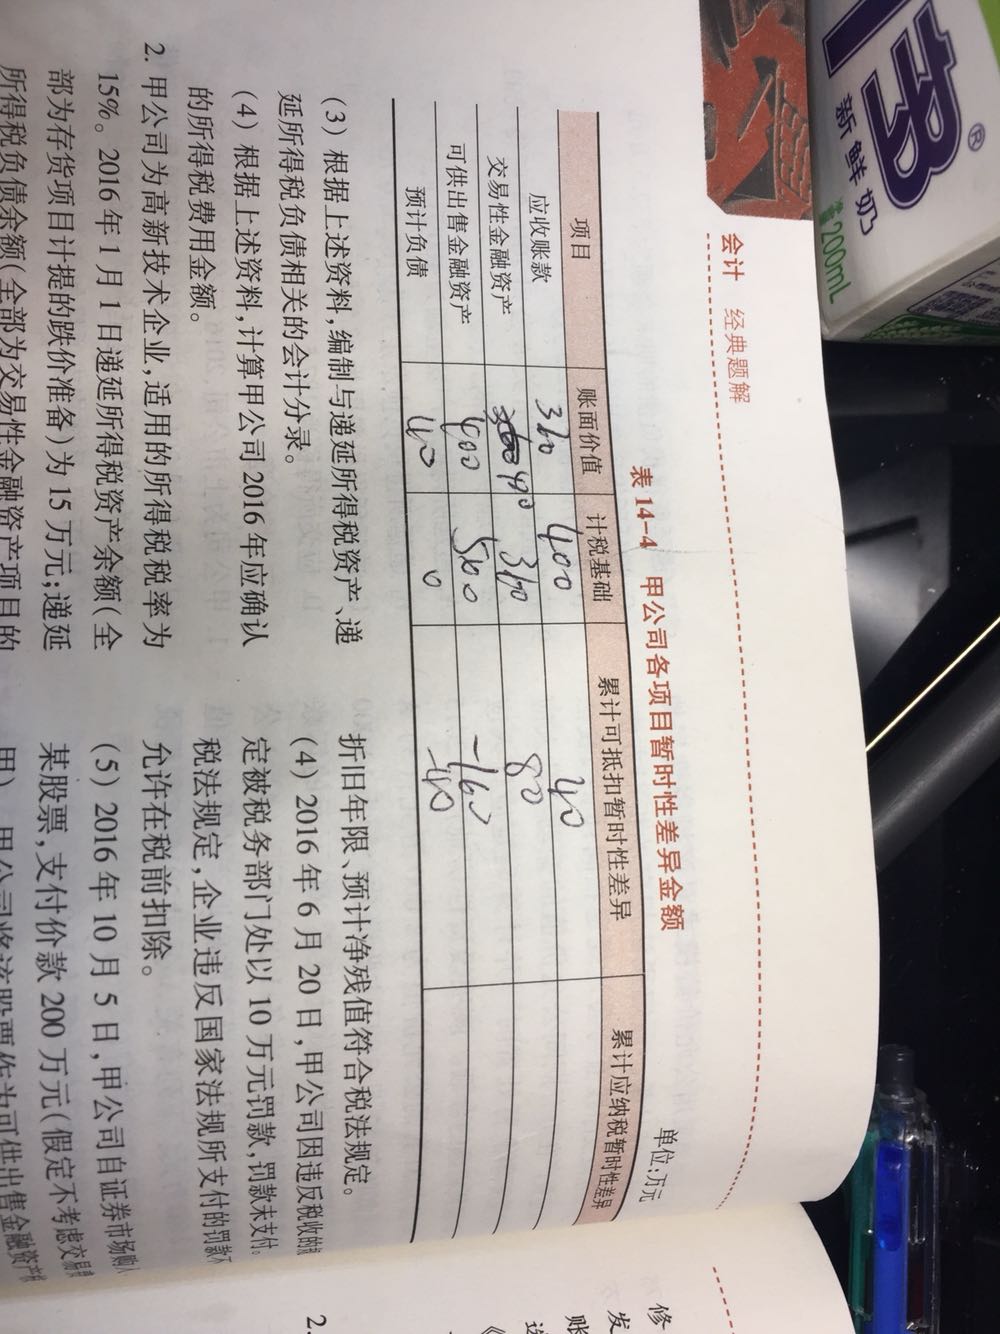 新鲜奶
200mL
会计 经典题解
表14-4 甲公司各项目暂时性差异金额
单位:万元
项目 账面价值 计税基础 累计可抵扣暂时性差异 累计应纳税暂时性差异
应收账款 360 400 40
交易性金融资产 360 80
可供出售金融资产 400 500 -160
预计负债 40 0 -40
(3)根据上述资料,编制与递延所得税资产、递
延所得税负债相关的会计分录。
(4)根据上述资料,计算甲公司2016年应确认
的所得税费用金额。
2. 甲公司为高新技术企业,适用的所得税税率为
15%。2016年1月1日递延所得税资产余额(全
部为存货项目计提的跌价准备)为15万元;递延
所得税负债余额(全部为交易性金融资产项目的
折旧年限、预计净残值符合税法规定。
(4)2016年6月20日,甲公司因违反税收的
定被税务部门处以10万元罚款,罚款未支付。
税法规定,企业违反国家法规所支付的罚款不
允许在税前扣除。
(5)2016年10月5日,甲公司自证券市场购入
某股票,支付价款200万元(假定不考虑交易
甲公司将该股票作为可供出售金融资产
修
发
账
2.